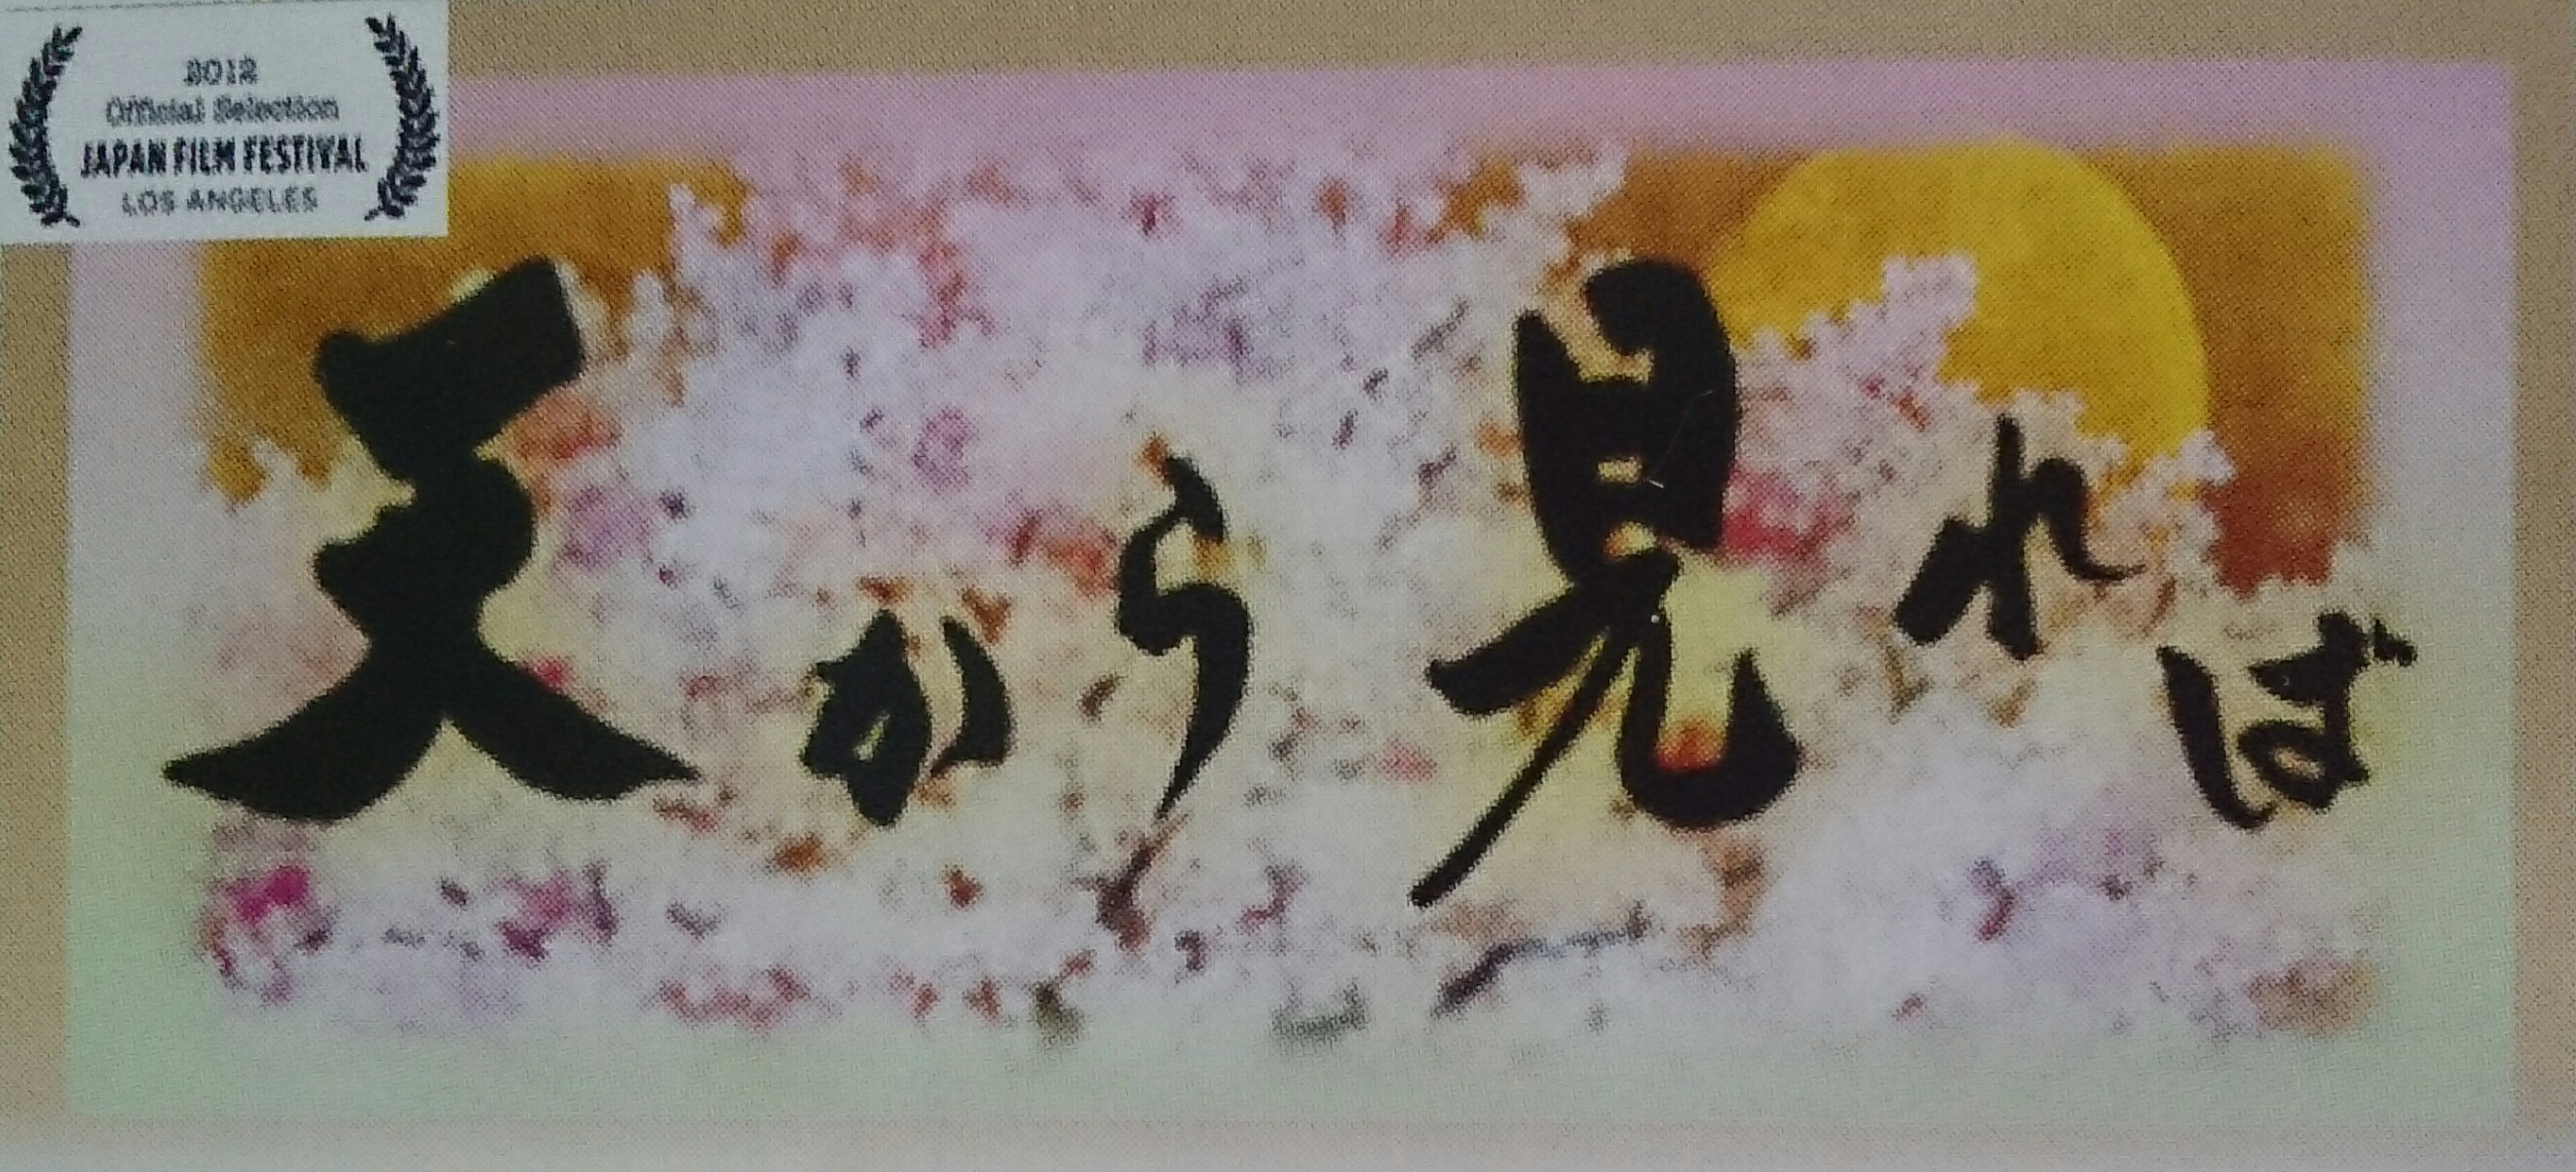 2012
Official Selection
JAPAN FILM FESTIVAL
LOS ANGELES
天から見れば